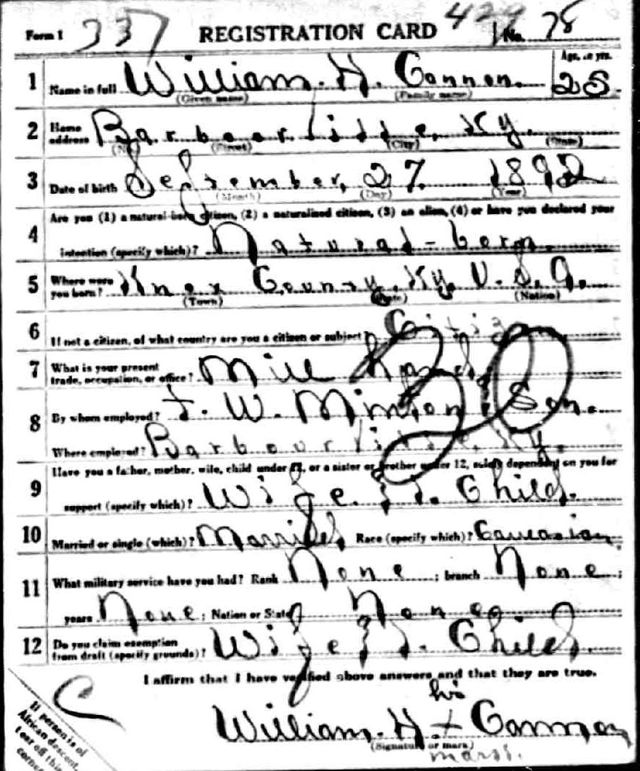 Form 1 337 REGISTRATION CARD 429 No. 78
1 Name in full William. H. Cannon. Age, in yrs. 25
(Given name) (Family name)
2 Home address Barbourville, Ky.
(No.) (Street) (City) (State)
3 Date of birth September, 27. 1892
(Month) (Day) (Year)
Are you (1) a natural-born citizen, (2) a naturalized citizen, (3) an alien, (4) or have you declared your
4 intention (specify which)? Natural-born.
5 Where were you born? Knox County, Ky. U.S.A.
(Town) (State) (Nation)
6 If not a citizen, of what country are you a citizen or subject? Citizen
7 What is your present trade, occupation, or office? Mill
8 By whom employed? T. W. Minton & Son.
Where employed? Barbourville, Ky.
9 Have you a father, mother, wife, child under 12, or a sister or brother under 12, solely dependent on you for
support (specify which)? Wife & 1. Child.
10 Married or single (which)? Married Race (specify which)? Caucasian
11 What military service have you had? Rank None ; branch None ;
years None ; Nation or State None
12 Do you claim exemption from draft (specify grounds)? Wife & 1. Child.
I affirm that I have verified above answers and that they are true.
his
William. H. + Cannon
(Signature or mark)
mark.
If person is of
African descent,
tear off this
corner